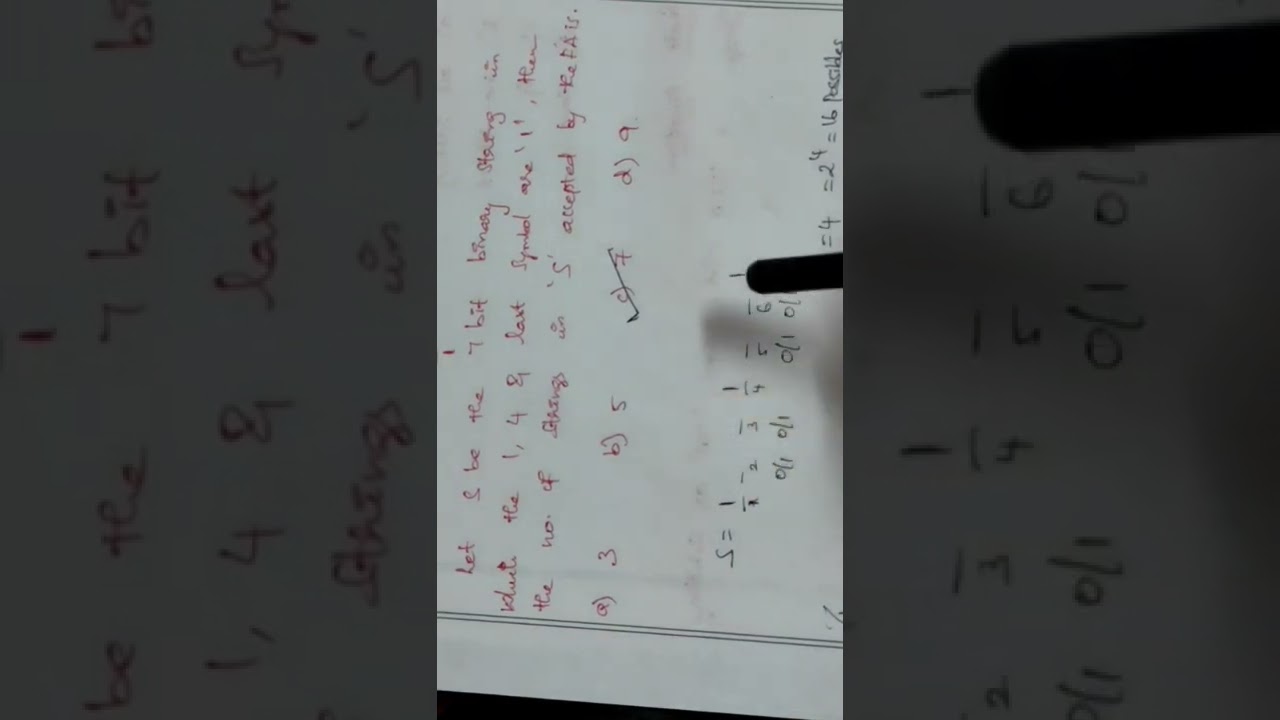 Let S be the 7 bit binary string in
which the 1, 4 & last symbol are '1', then
the no. of strings in 'S' accepted by the FA is.
a) 3 b) 5 c) 7 d) 9
S = 1 1 1
1 2 3 4 5 6
0/1 0/1 0/1 0/1
= 4 = 2⁴ = 16 possibles